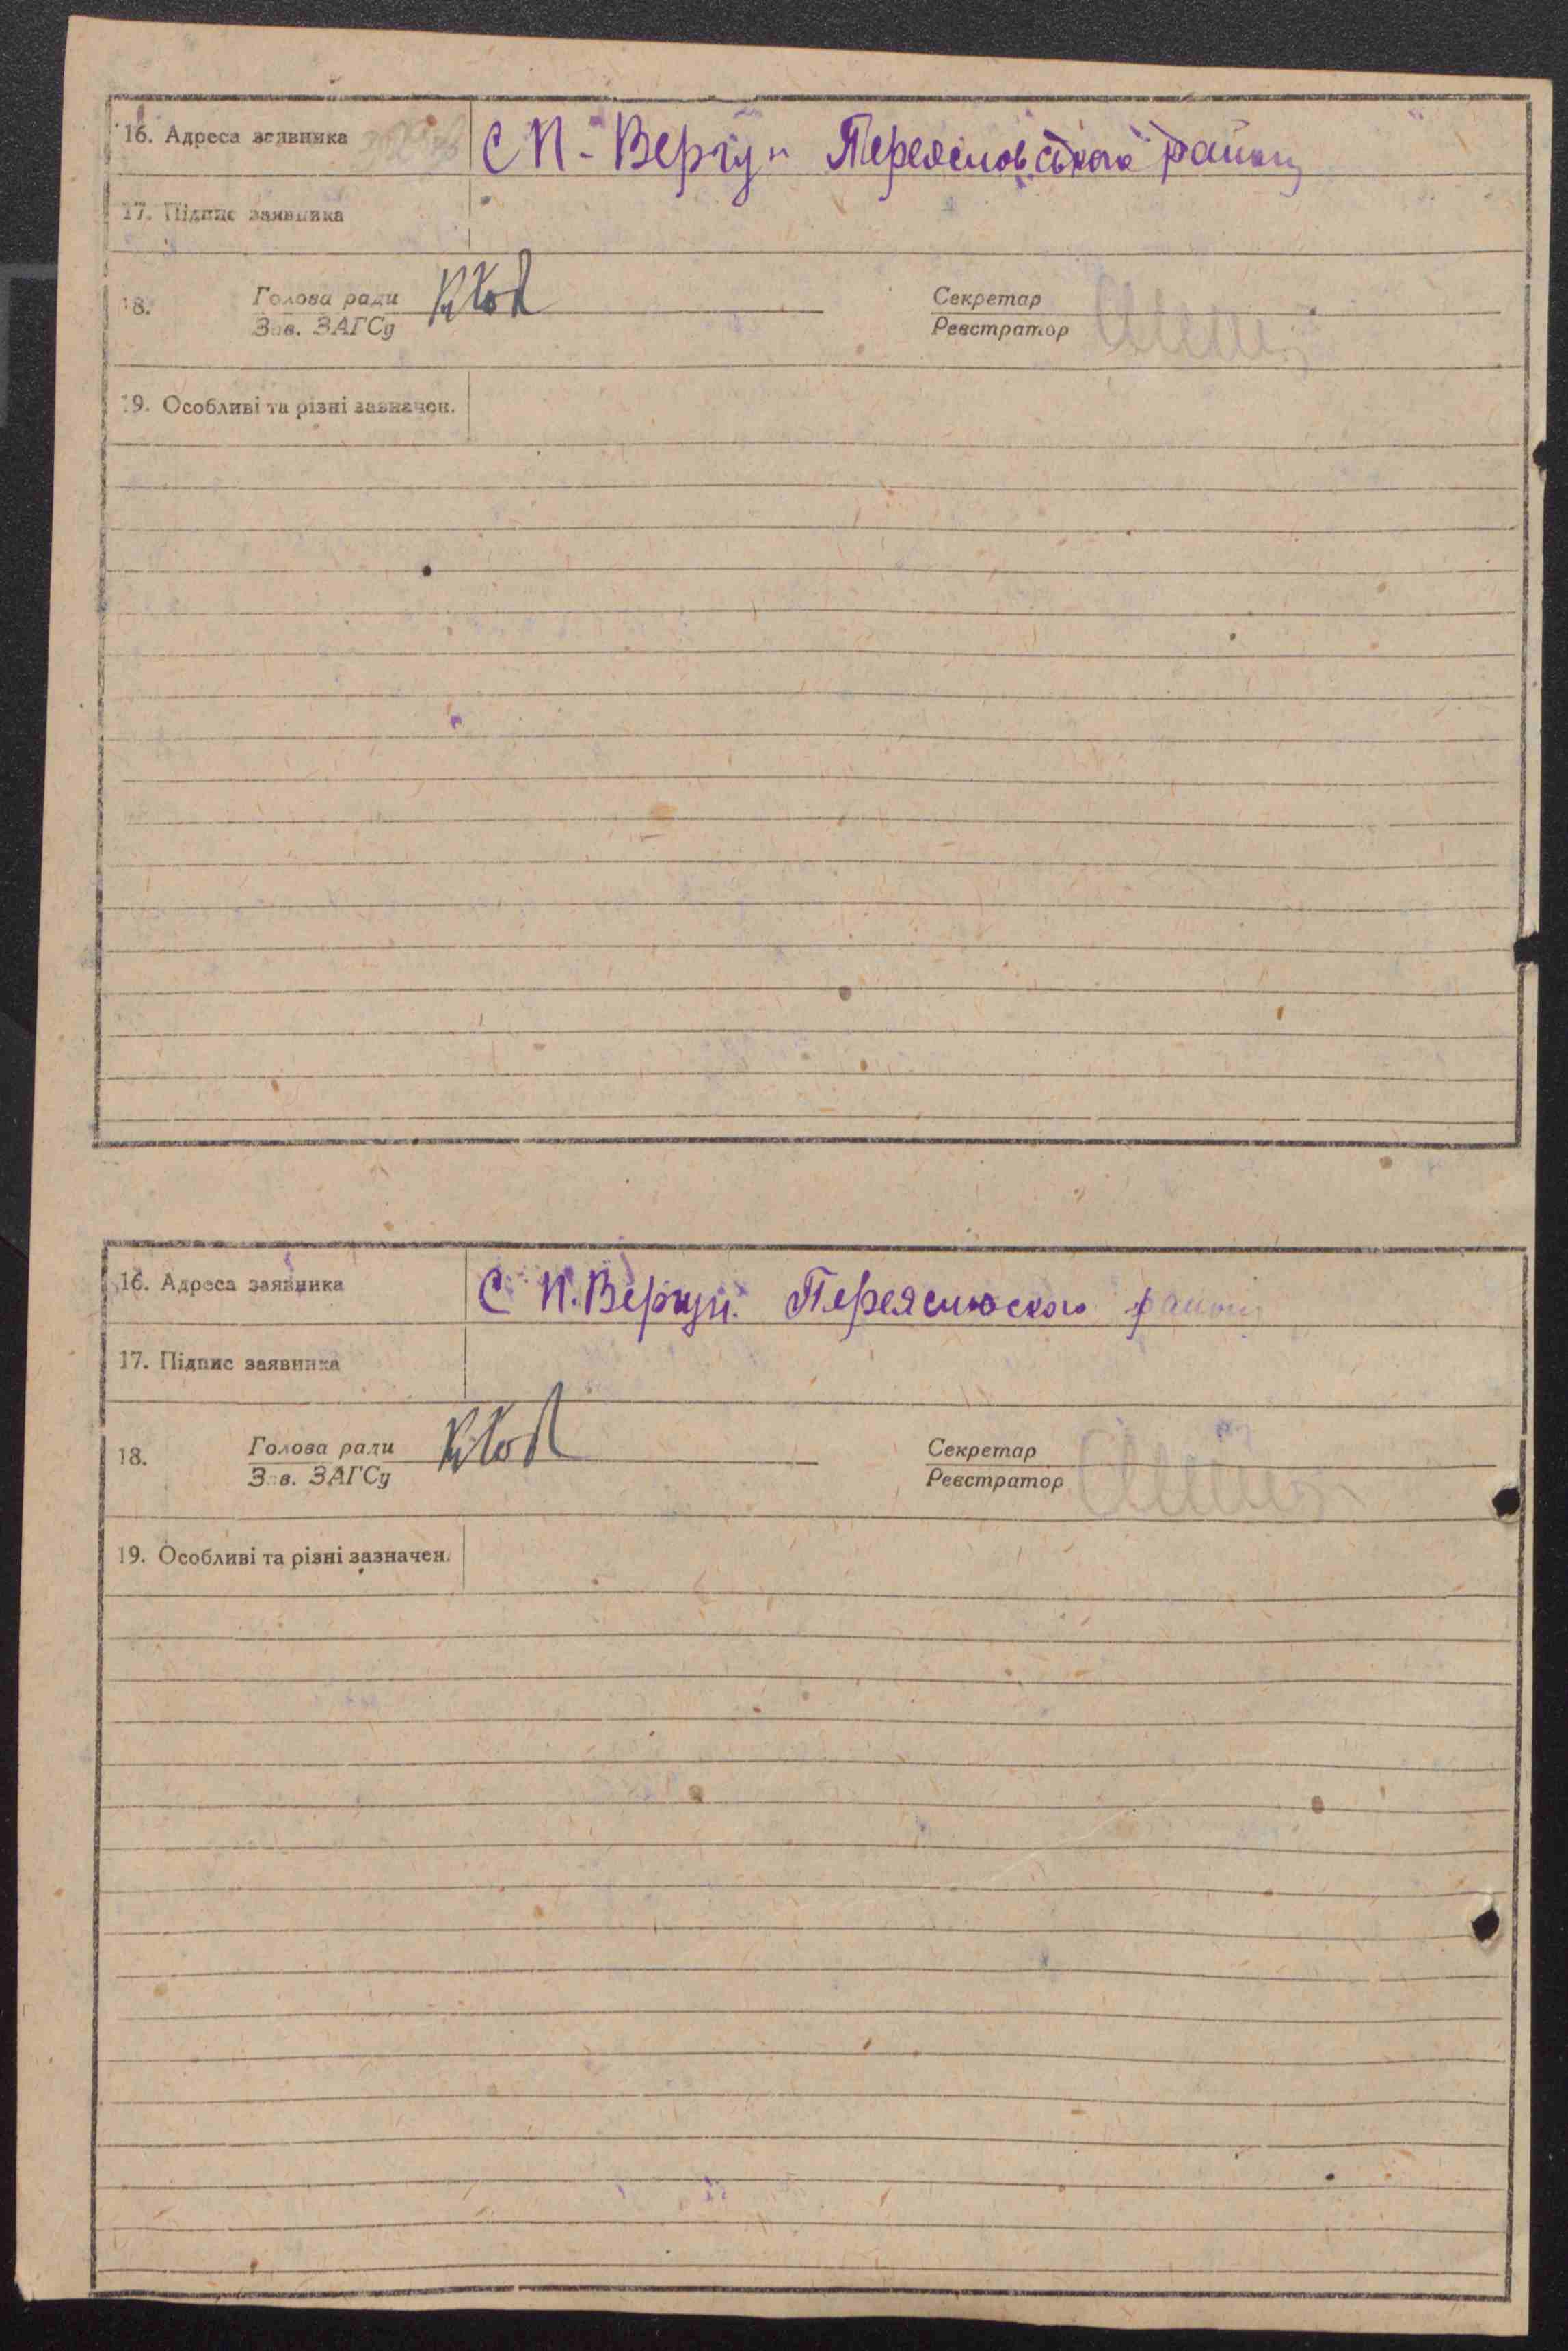 16. Адреса заявника С П-Вергун Переяславського району
17. Підпис заявника
18. Голова ради Секретар
Зав. ЗАГСу Реєстратор
19. Особливі та різні зазначен.
16. Адреса заявника С П.Вергун. району
17. Підпис заявника
18. Голова ради Секретар
Зав. ЗАГСу Реєстратор
19. Особливі та різні зазначен.